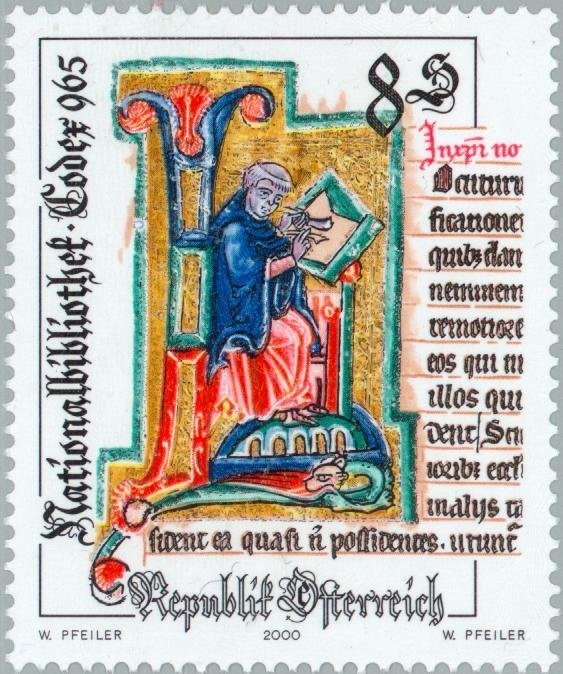 Nationalbibliothek · Codex 965
8 S
Inxpı̄ no
ficatione
quib; dam
neminem
remotiore
eos qui in
illos qui
dent Scu
malys ta
sident ea quasi ñ possidentes. utunt̃
Republik Österreich
W. PFEILER 2000 W. PFEILER